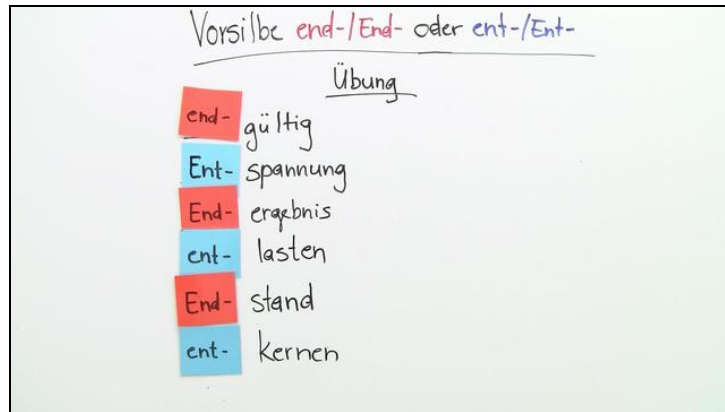 Vorsilbe end-/End- oder ent-/Ent-
Übung
end- gültig
Ent- spannung
End- ergebnis
ent- lasten
End- stand
ent- kernen